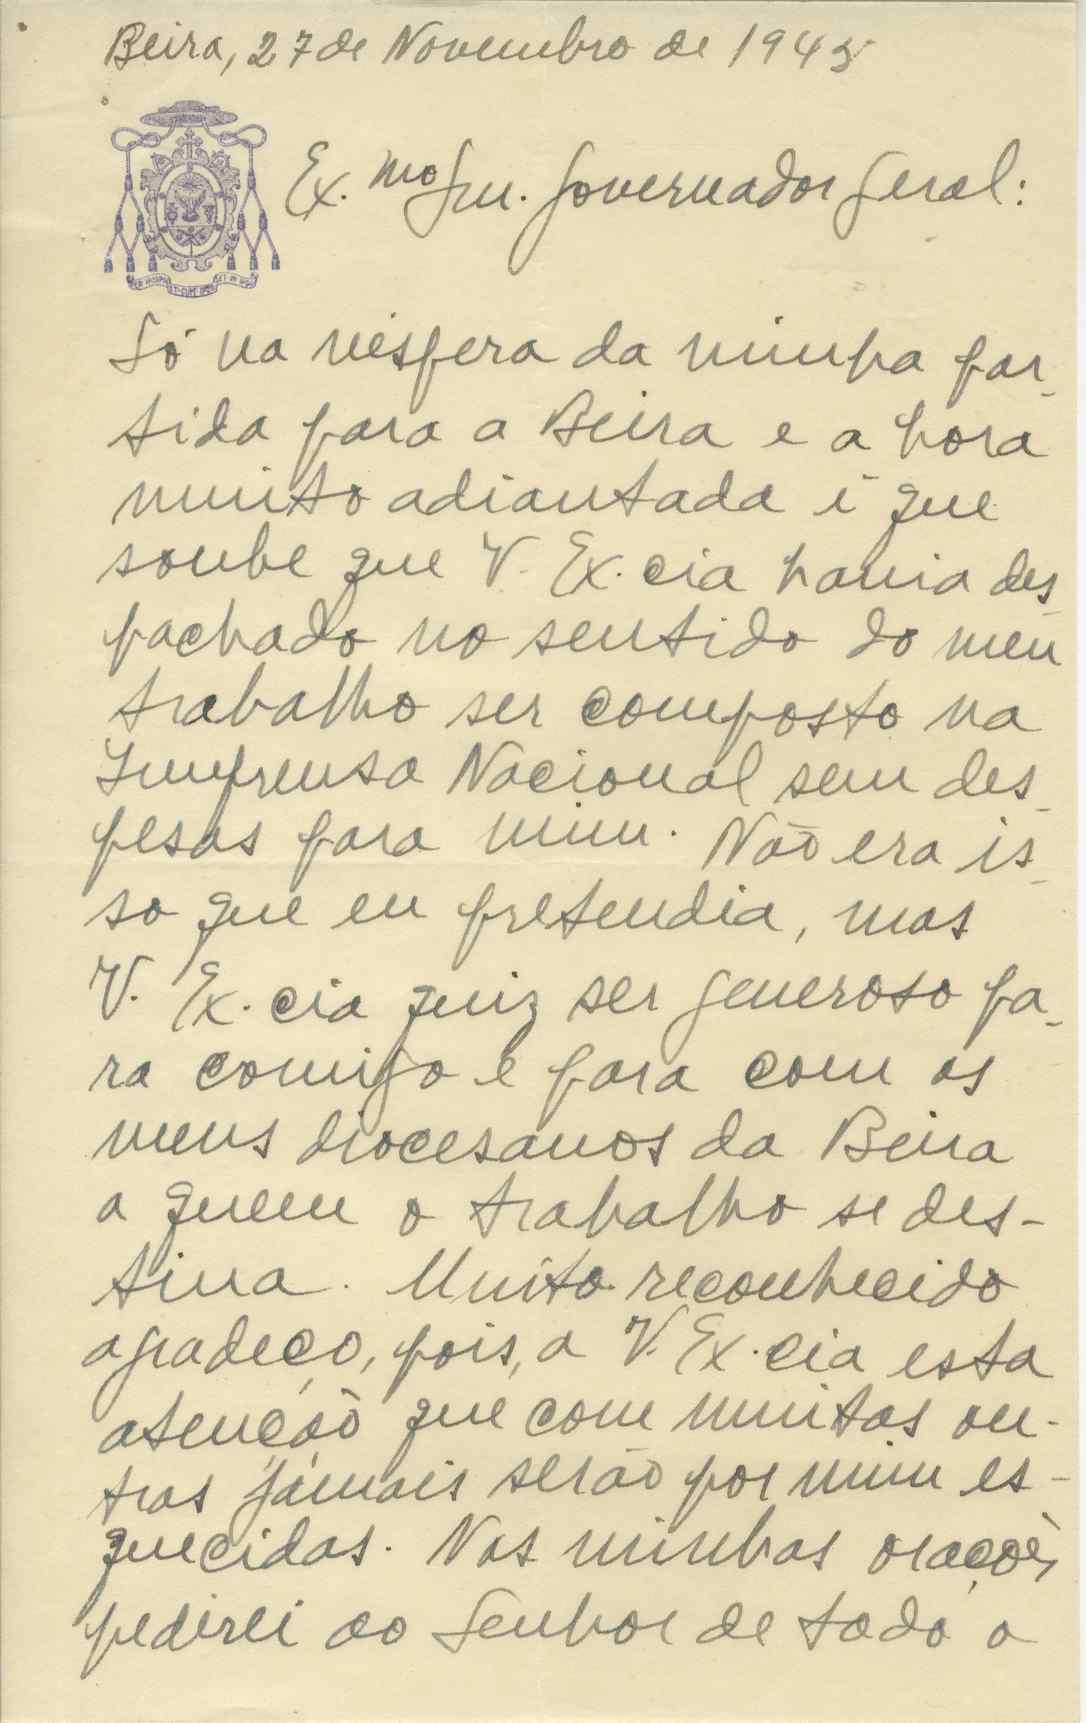 Beira, 27 de Novembro de 1945
Ex.mo Snr. Governador Geral:
Só na véspera da minha par-
tida para a Beira e a hora
muito adiantada é que
soube que V. Ex.cia havia des-
pachado no sentido do meu
trabalho ser composto na
Imprensa Nacional sem des-
pesas para mim. Não era is-
so que eu pretendia, mas
V. Ex.cia quiz ser generoso pa-
ra comigo e para com os
meus diocesanos da Beira
a quem o trabalho se des-
tina. Muito reconhecido
agradeço, pois, a V. Ex.cia esta
atenção que com muitas ou-
tras jámais serão por mim es-
quecidas. Nas minhas orações
pedirei ao Senhor de todo o